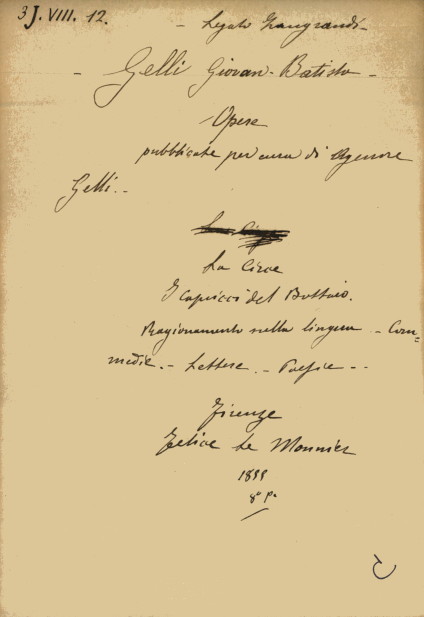 3 J. VIII. 12.
- Legato Zangrandi -
- Gelli Giovan-Batista -
Opere
pubblicate per cura di Agenore
Gelli. -
La Circe
La Circe
I capricci del Bottaio.
Ragionamento sulla lingua - Com=
medie. - Lettere. - Poesie - -
Firenze
Felice Le Monnier
8° p.